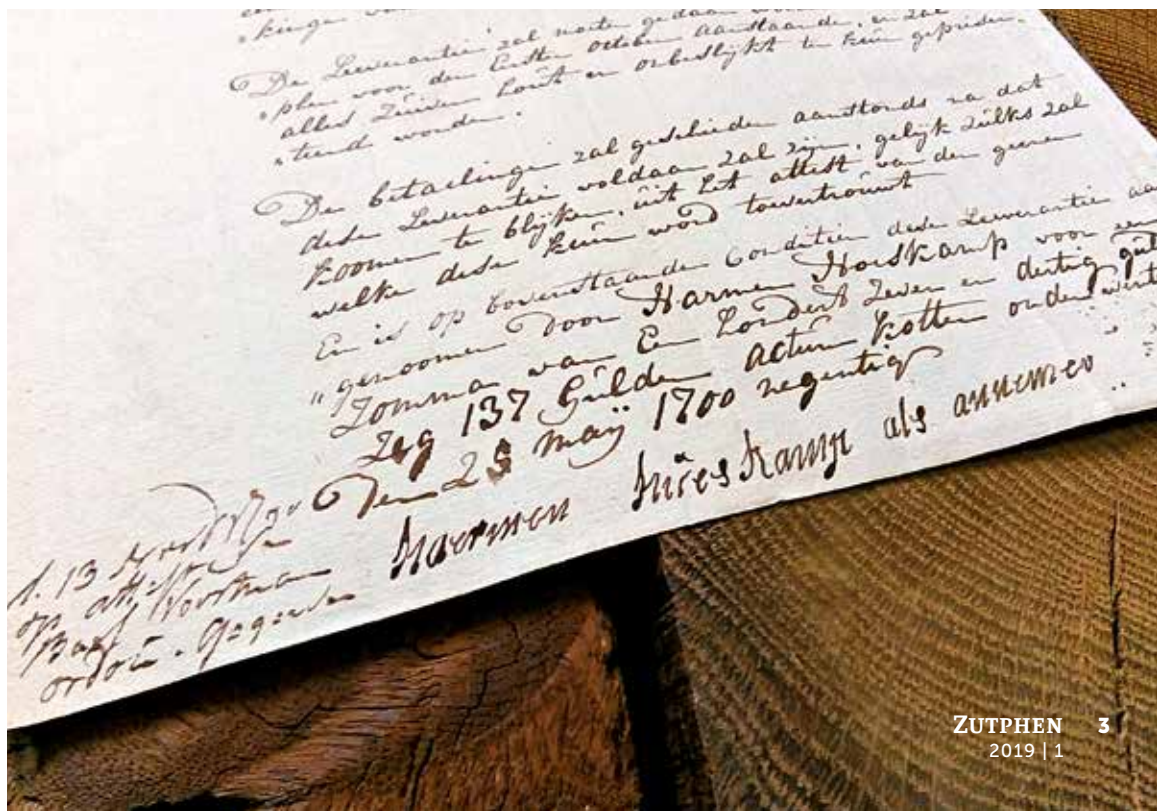 „kinge
De Leeverantie zal moeten gedaan
„plen voor den Eersten October aanstaande, en zal
alles Zuiver hout en onbeslijkt ten
„teerd worden.
De betaelinge zal geschieden aanstonds na dat
dese Leeverantie voldaan zal zijn, gelijk zulks zal
koomen te blijken, uit het attest van den geenen
welke dese keur word toevertrouwt
En is op bovenstaande Conditien dese Leeverantie aan
„genoomen door Harmen Hoeskamp voor een
Zomma van Een hondert Zeven en dertig
Zeg 137 Gulden actum Kotten onder
Den 25 maij 1700 negentig
haermen als annemer
d. 13
op
Voortman
ZUTPHEN 3
2019 | 1